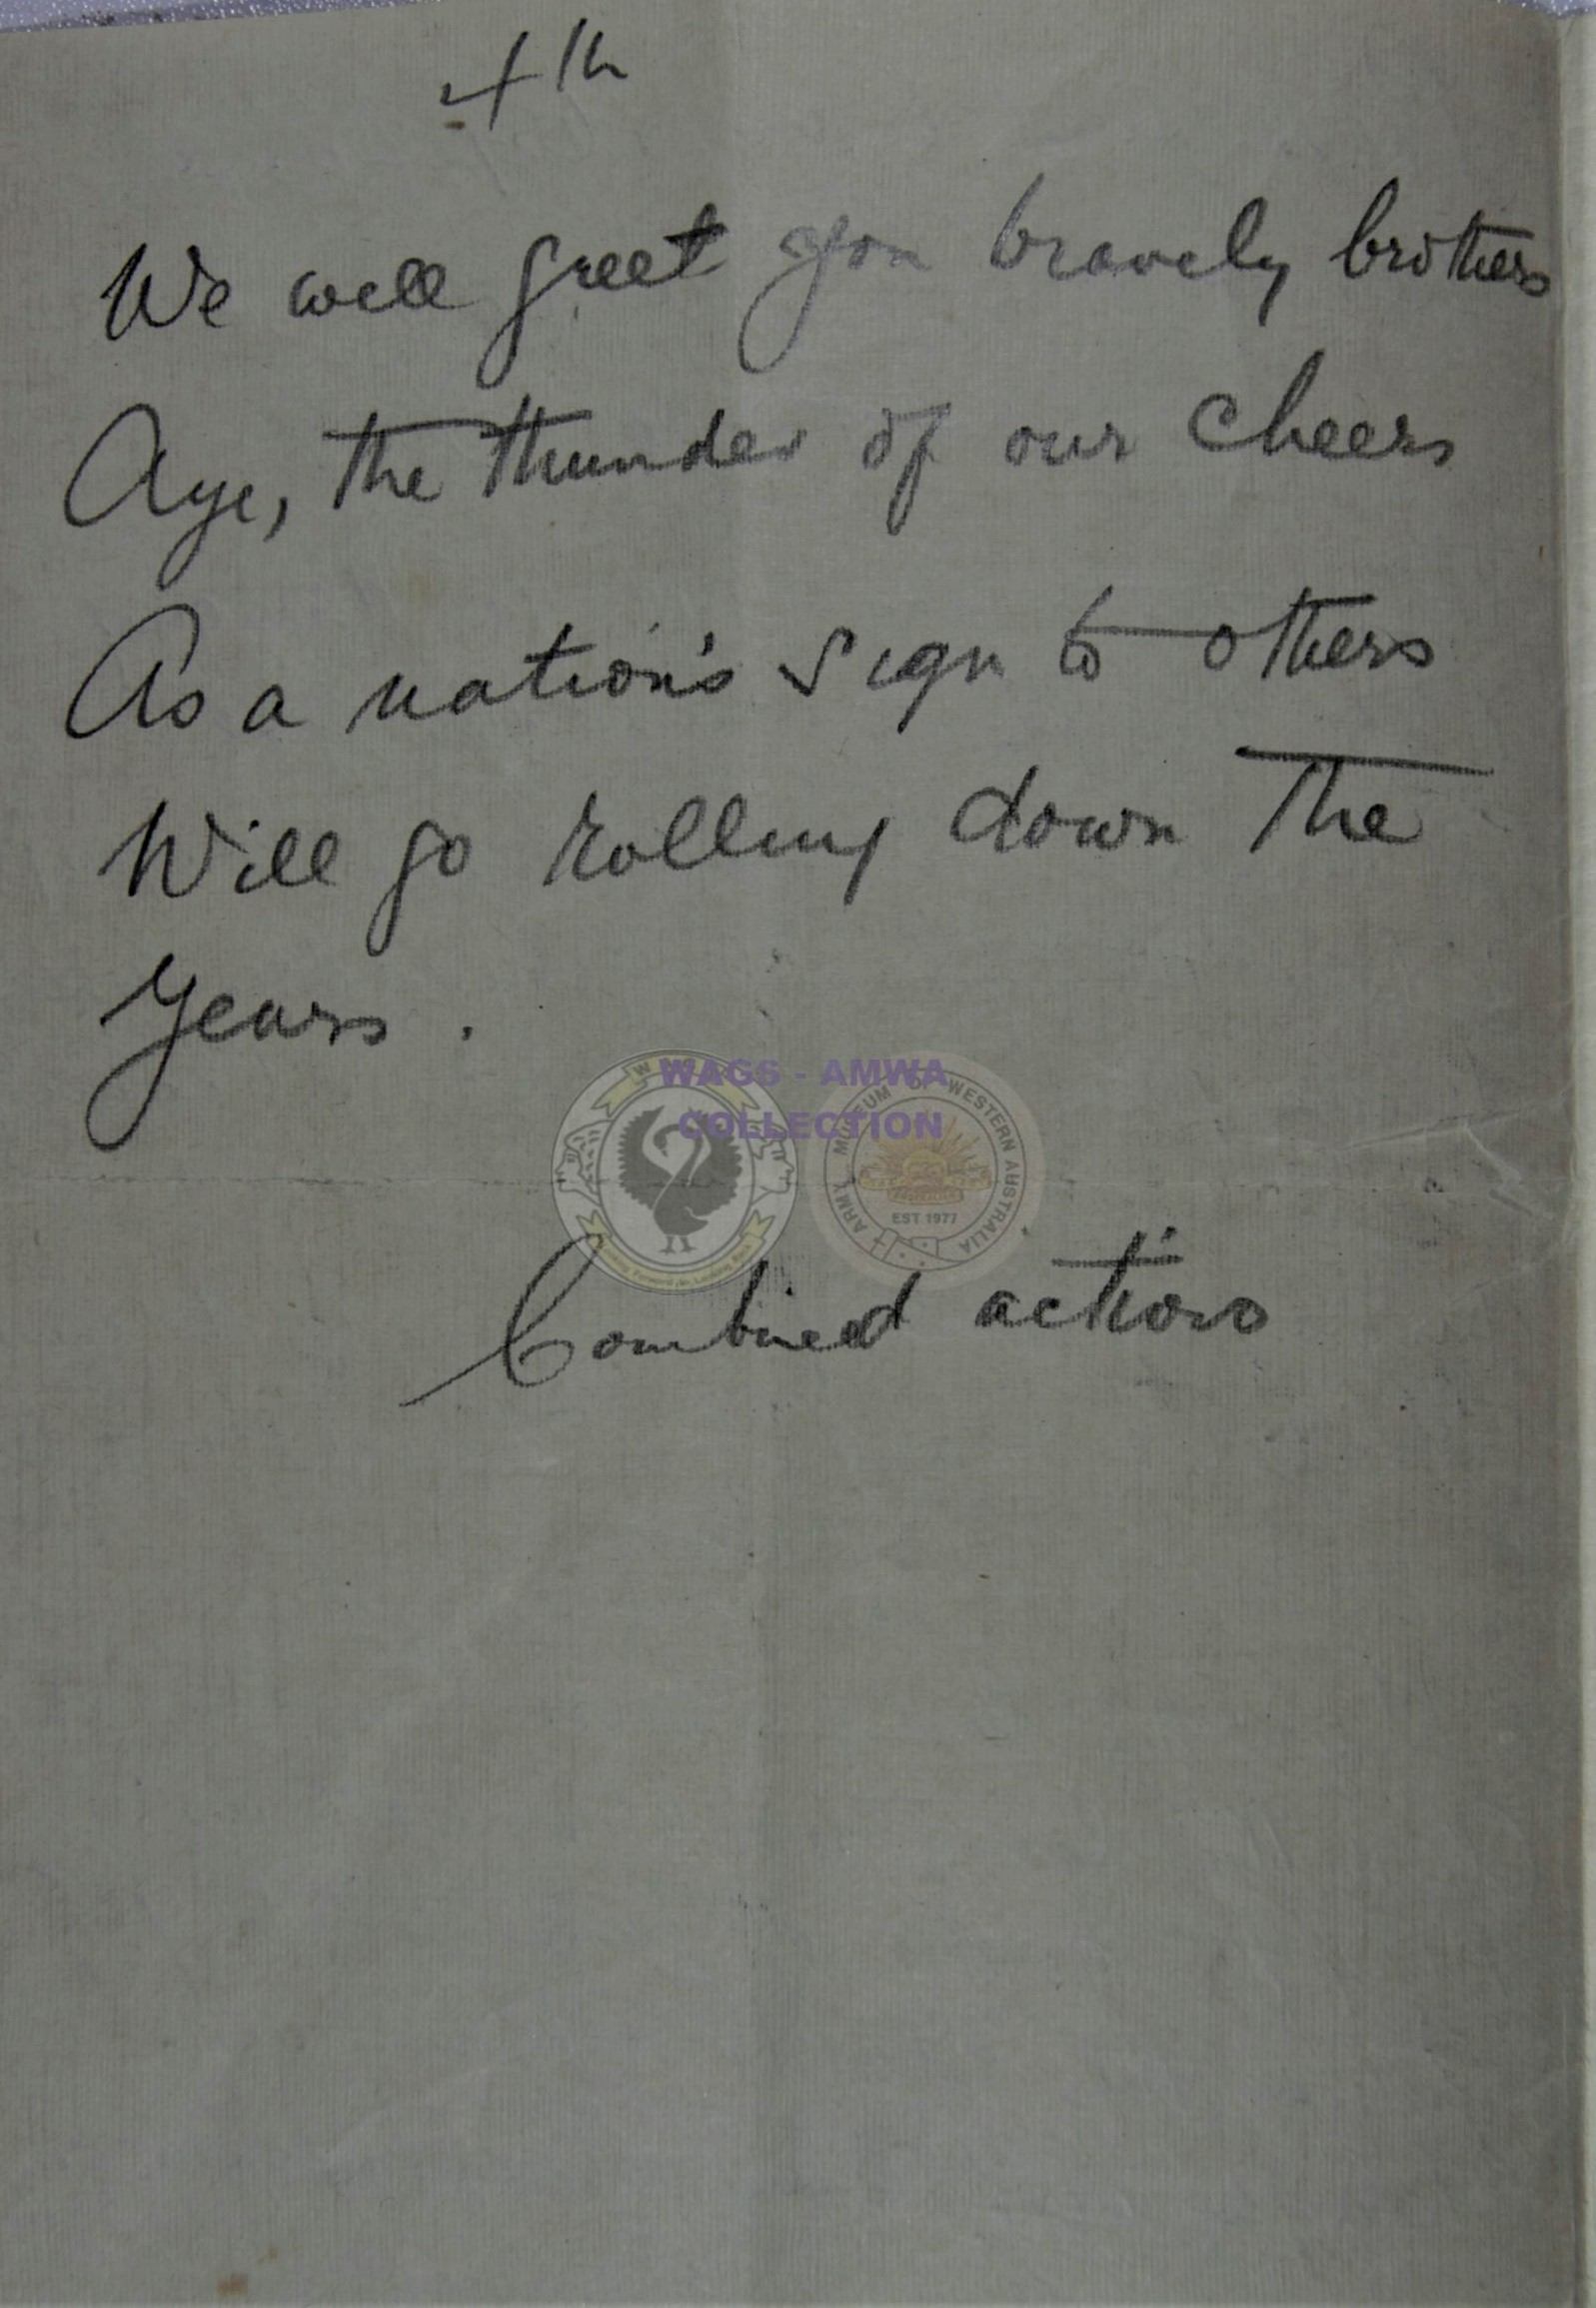 4th
We will greet you bravely brothers
Aye, the thunder of our cheers
As a nation's sign to others
Will go rolling down the
Years.
WAGS - AMWA
COLLECTION
ARMY MUSEUM OF WESTERN AUSTRALIA
EST 1977
Combined actions